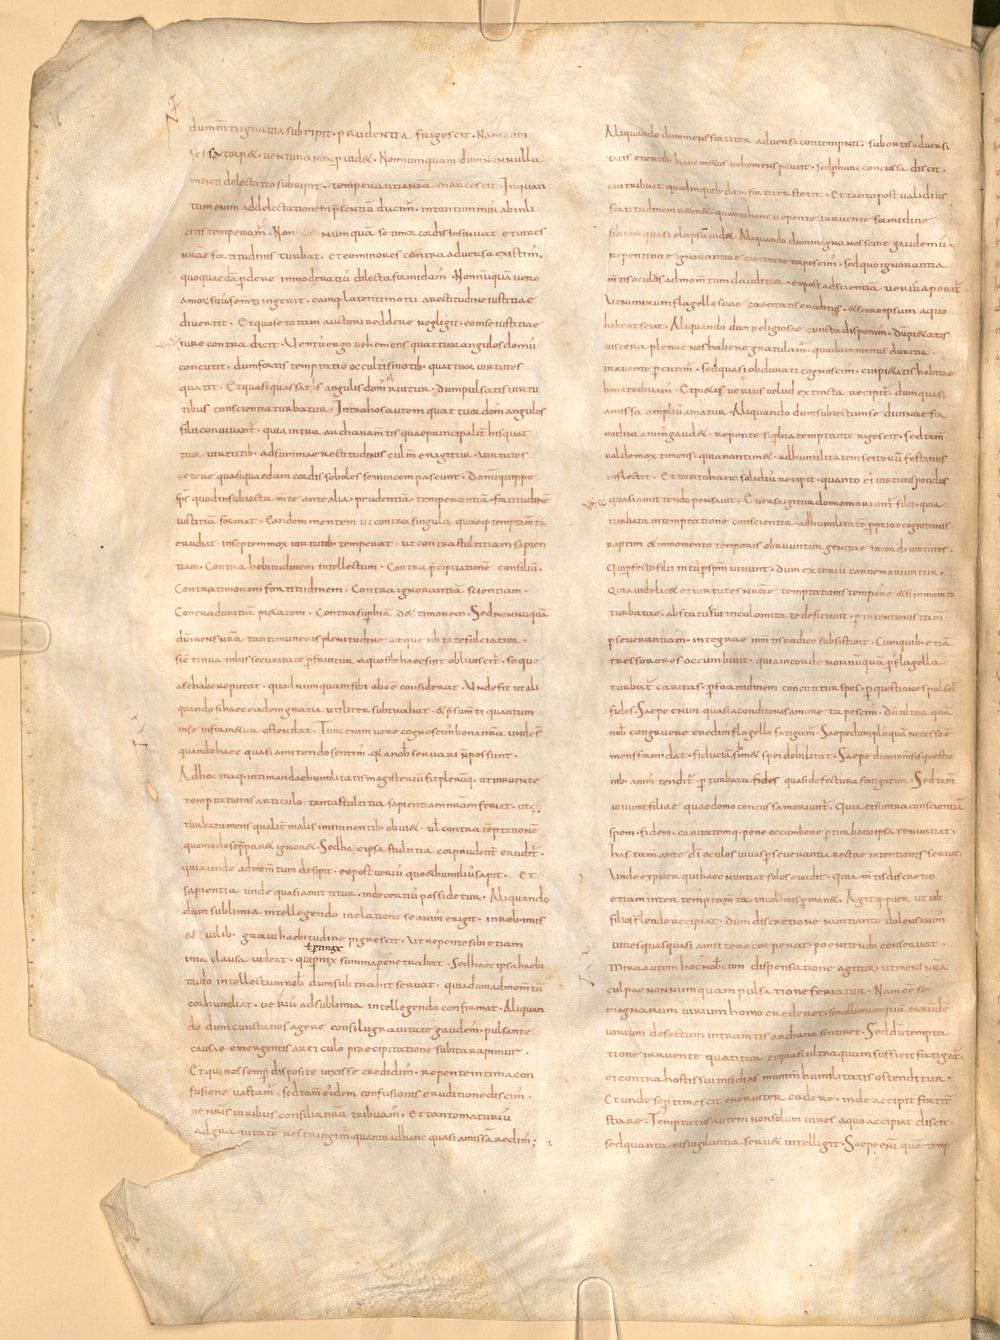 dum mti ignauia subripit · prudentia frigescit · Nam cum
fessa torpet · uentura non prouidet · Nonnumquam dum nonnulla
menti delectatio subripit · temperantia nra marcescit · In quan
tum enim ad delectationem psentiu ducim · in tantum minus ab inli
citis temperam · Non numqua se timor cordis insinuat et uires
nrae fortitudinis turbat · et eo minores contra aduersa existim ·
quo quaedam pdere inmoderatius dilecta formidam · Nonnuqua uero
amor suus se mti ingerit · eamq latenti motu a rectitudine iustitiae
diuertit · Et quo se totam auctori reddere neglegit · eo in se iustitiae
iure contradicit · Uentus ergo uehemens quattuor angulos domus
concutit · dum fortis temptatio occultis motib · quattuor uirtutes
quatit · Et quasi quassatis angulis domus eruitur · dum pulsatis uirtu
tibus conscientia turbatur · Intra hos autem quattuor domus angulos
filii conuiuant · quia intra archana mtis quae principalit his quat
tuor uirtutib · ad summae rectitudinis culmen erigitur · uirtutes
ceterae quasi quaedam cordis soboles se inuicem pascunt · Donu quippe
sps quod in subiecta mte ante alia · prudentia · temperantia · fortitudine
iustitia format · Eandem mentem ut contra singula quaeq temptamta
erudiat · in septem mox uirtutib temperat · ut contra stultitiam sapien
tiam · Contra hebitudinem intellectum · Contra pcipitatione consiliu ·
Contra timorem fortitudinem · Contra ignorantia scientiam ·
Contra duritia pietatem · Contra supbia det timorem · Sed nonnuqua
du mens nra tanti muneris plenitudine atque ubertate fulciatur ·
si continua in his securitate pfruitur · a quo sibi haec sint obliuiscit · seque
a se habere putat · quod numquam sibi abee considerat · Unde fit ut ali
quando si haec eadem gratia utiliter subtrahat · et psumti quantum
in se infirmetur ostendat · Tunc enim uere cognoscim bona nra unde st
quando haec quasi amittendo sentim · q a nob seruari n possunt ·
Ad hoc itaq intimandae humilitatis magisteriu fit pleruq · ut inruente
temptationis articulo tanta stultitia sapientiam nram feriat · ut
turbata mens qualit malis inminentib obuiet · ul contra teptatione
quomodo se pparet ignoret · Sed hac ipsa stultitia cor prudent erudit ·
quia unde ad momtum desipit · eo post ueriu quo et humiliu sapit · Et
sapientia unde quasi amittitur · inde certiu possidetur · Aliquando
dum sublimia intellegendo in elatione se anim erigit · in reb imis
et uilib · graui hebitudine pigrescit · Ut repente sibi etiam
ima clausa uideat · qui pnix summa penetrabat · Sed haec ipsa hebi
tudo intellectum nob dum subtrahit seruat · quia dum ad momtu
cor humiliat · ueriu ad sublimia intellegenda confirmat · Aliquan
do dum cuncta nos agere consilii grauitate gaudem · pulsante
causae emergentis articulo praecipitatione subita rapimur ·
Et qui nos semp disposite uixisse credidim · repente intima con
fusione uastam · sed tam eidem confusionis eruditione discim ·
ne nris uiribus consilia nra tribuam · Et tanto maturiu
ad grauitate restringim quanto ad hanc quasi amissa redim ·
Aliquando dum mens fortiter aduersa contemnit · subortis aduersi
tatis euentib hanc metus uehemens pculit · sed p hunc concussa discit ·
cui tribuat quod in quibusdam fortiter stetit · Et tanto post ualidius
fortitudinem retinet · quanto hanc repente inruente formidine
sibi iam quasi elapsa uidet · Aliquando dum magna nos scire gaudemus ·
repentina et ignorantiae caecitate torpescim · sed quo ignorantia
mtis oculus ad momtum clauditur · eo post ad scientia ueriu aperit ·
Ut nimirum flagello suae caecitatis eruditus · et scire ipsum a quo
habeat sciat · Aliquando dum religiosae cuncta disponim · du pietatis
uiscera plenae nos habere gratulam · quadam mentis duritia
inruente pcutim · sed quasi obdurati cognoscim · cui pietatis habitae
bona tribuam · Et pietas uerius uelud extincta recipit · dum quasi
amissa ampliu amatur · Aliquando dum subiectum se diuinae for
midini anim gaudet · repente supbia temptante rigescit · sed tam
ualde mox timens · quia non timet · ad humilitatem se iteru festinus
inflectit · Et tanto hanc solidiu recipit · quanto ei uirtutis pondus
quasi amittendo pensauit · Euersa igitur domo moriunt filii · quia
turbata in temptatione conscientia · ad humilitate ppriae cognitionis
raptim et in momento temporis obruuntur genitae in corde uirtutes ·
Qui pfecto filii intus p spm uiuunt · dum exteriu carne moriuntur ·
Quia uidelicet uirtutes nrae temptationis tempore et si in momto
turbatae ab statu sui incolomitate deficiunt · p intentionis tam
pseuerantiam · integrae in mtis radice subsistunt · Cum quib etia
tres sorores occumbunt · quia in corde nonnuqua p flagella
turbat caritas · p formidinem concutitur spes · p questiones pulsat
fides · Saepe enim quasi a conditoris amore torpescim · du ultra qua
nob congruere credim flagello fatigam · Saepe dum plusqua necesse e
mens formidat · fiducia sue spei debilitat · Saepe du inmensis questio
nib · anim tendit · pturbata fides quasi defectura fatigatur · Sed tam
uiuunt filiae quae domo concussa moriunt · Quia et si intra conscientia
spem · fidem · caritatemq · pene occumbere pturbatio ipsa renuntiat ·
has tam ante di oculos uiuas pseuerantia rectae intentionis seruat ·
Unde et puer qui haec nuntiat solus euadit · quia mtis discretio
etiam inter temptamta incolomis pmanet · Agit q puer ut iob
filios flendo recipiat · dum discretione nuntiante dolens anim
uires quas quasi amittere coeperat · poenitendo conseruat ·
Mira autem hoc nob cum dispensatione agitur ut mens nra
culpae nonnumquam pulsatione feriatur · Nam ee se
magnarum uirium homo crederet · si nullum umqua earunde
uirium defectum intra mtis archana sentiret · Sed du tempta
tione inruente quatitur et quasi ultra quam sufficit fatigat ·
ei contra hostis sui insidias munimm humilitatis ostenditur ·
Et unde se ptimescit eneruiter cadere · inde accipit fortit
stare · Temptatus autem non solum uires a quo accipiat discit ·
sed quanta eas uigilantia seruet intellegit · Saepe eni que temp